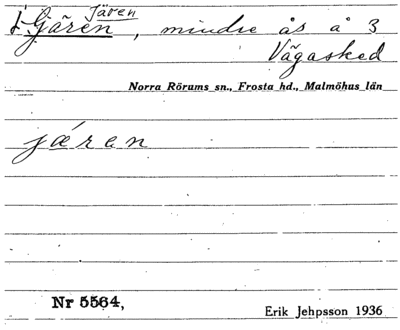 Jären
Gjären, mindre ås å 3
Vägasked
Norra Rörums sn., Frosta hd., Malmöhus län
jären
Nr 5564,
Erik Jehpsson 1936